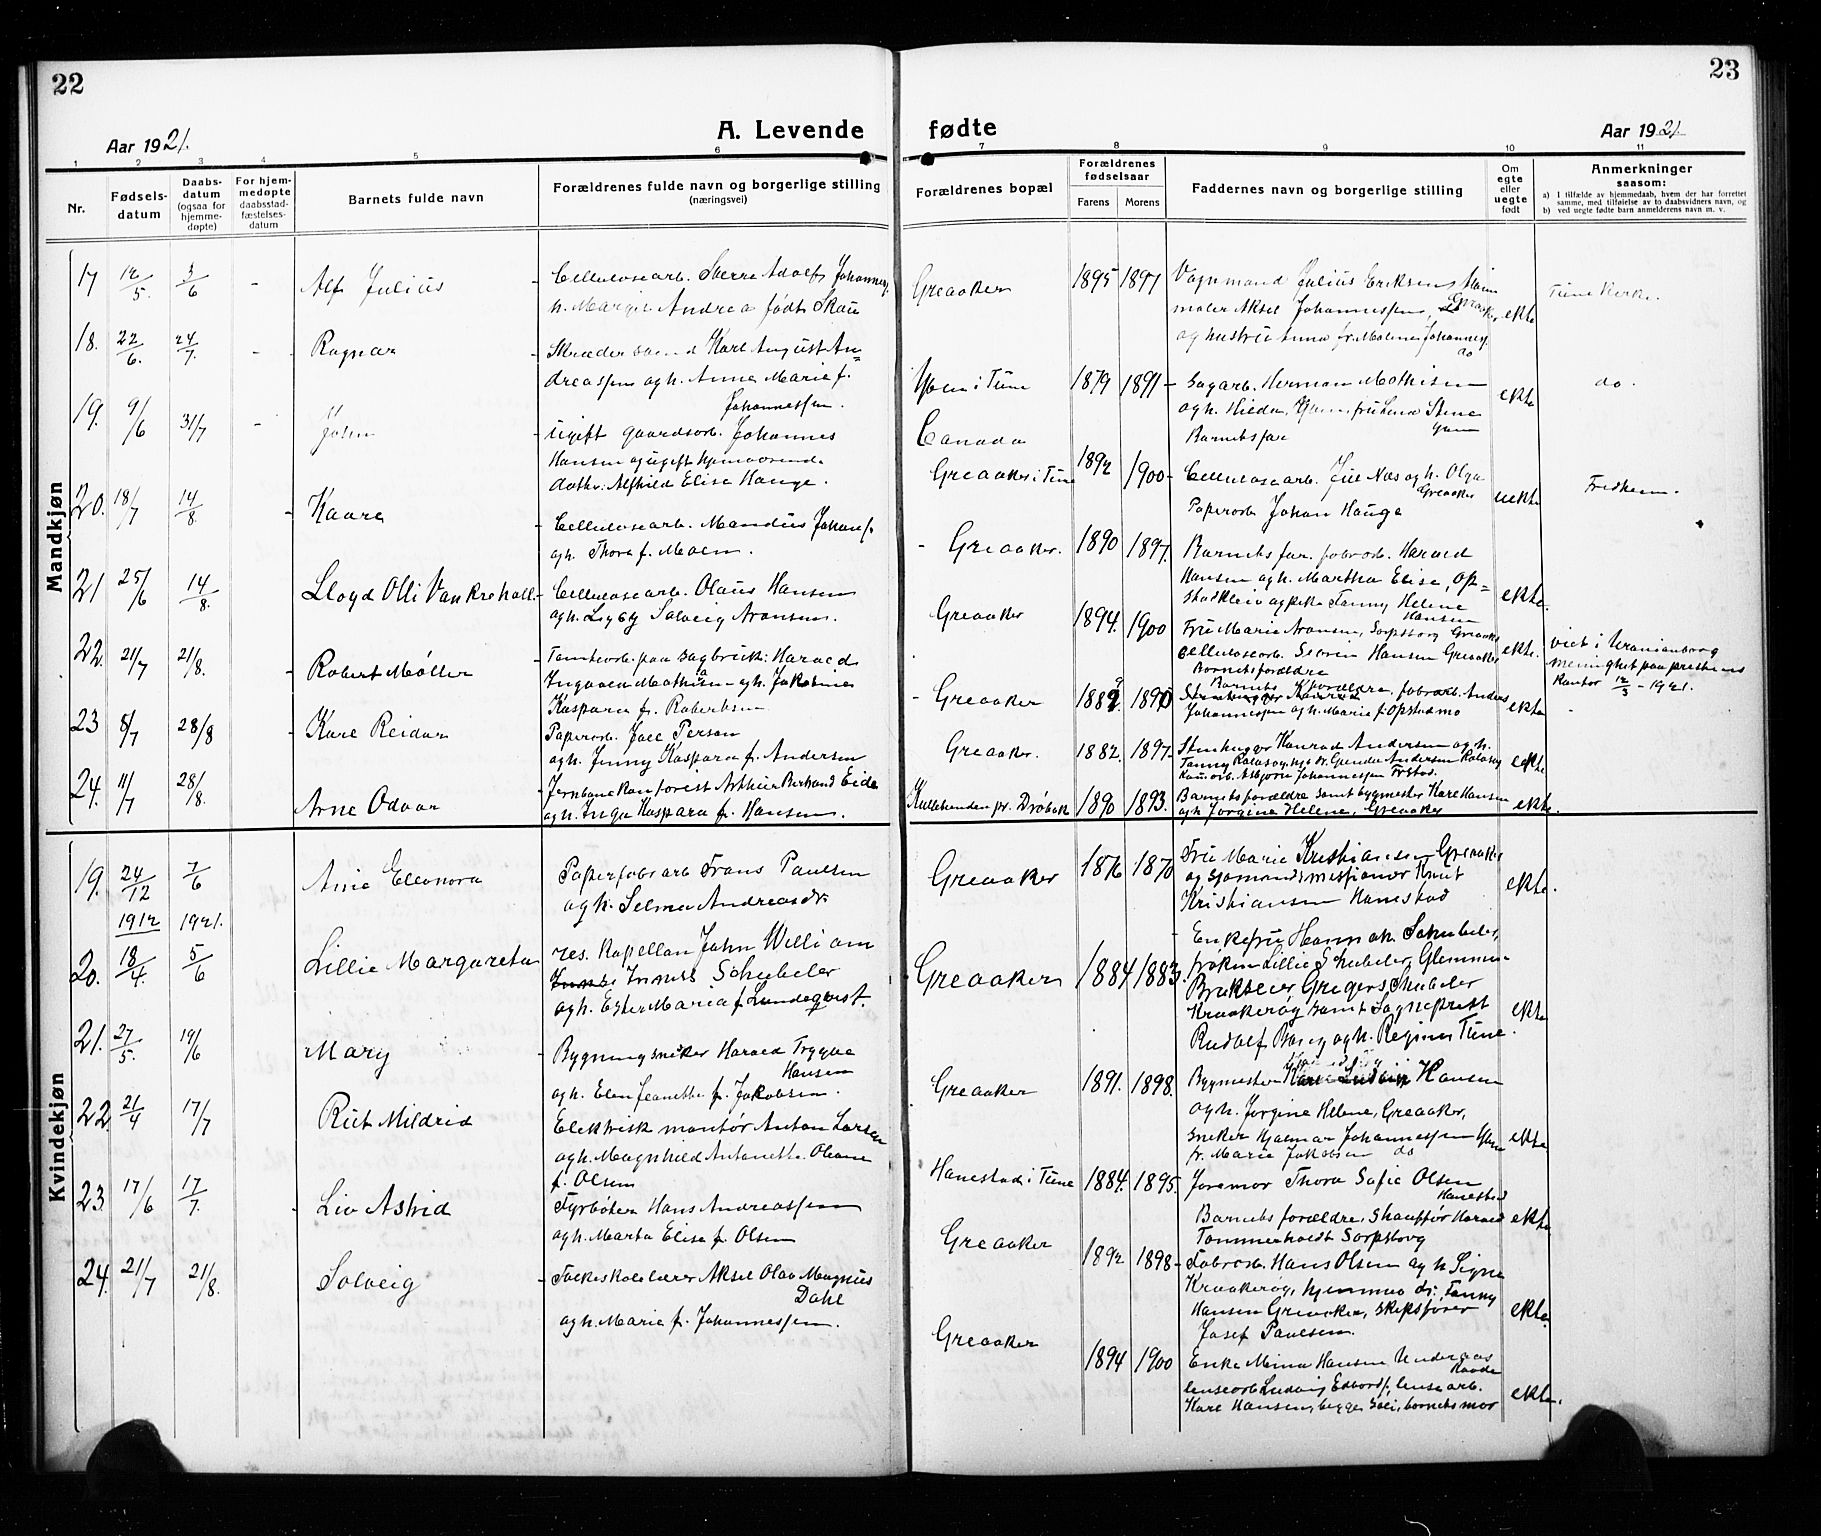 22
Aar 1921.
A. Levende
1 2 3 4 5 6
Nr.
Fødsels-
datum
Daabs-
datum
(ogsaa for
hjemme-
døpte)
For hjem-
medøpte
daabsstad-
fæstelses-
datum
Barnets fulde navn
Forældrenes fulde navn og borgerlige stilling
(næringsvei)
Mandkjøn
17 12/5. 3/6 - Alf Julius - Cellulosearb. Sverre Adolf Johanness.
h. Margit Andrea født Skau
18. 22/6. 24/7. - Ragnar - Skræddersvend Karl August An=
dreassen og h. Anna Marie f.
Johannessen.
19. 9/6 31/7 - John - Ugift gaardsarb. Johannes
Hansen og ugift hjemværende
datter Alfhild Elise Hauge.
20. 18/7 14/8. - Kaare - Cellulosearb. Mandius Johans.
og h. Thora f. Moen.
21 25/6 14/8. Lloyd Olli Van Krehall. - Cellulosearb. Olaus Hansen
og h. Solveig Aronsen.
22. 21/7 21/8. Robert Møller - Tomtearb. paa sagbruk: Harald
Ingvald Mathisen og h. Jakobine
Kaspara f. Robertsen
23 8/7 28/8 - Kare Reidar Paperarb. Joel Person
og h. Jenny Kaspara f. Andersen
24. 11/7 28/8. Arne Odvar Jernbanekontorist Arthur Bertrand Eide
og h. Inga Kaspara f. Hansen.
Kvindekjøn
19. 24/12 1912 7/6 1921. Anne Eleonora Paperfabrarb Frans Paulsen
og h. Selma Andreasdr.
20. 18/4 5/6 Lillie Margareta res. Kapellan John William
Innes Schübeler
og h. Ester Maria f. Lundeqvist.
21. 27/5. 19/6 Mary - Bygningsnekker Harald Trygve
Hansen
og h. Elen Jeanette f. Jakobsen.
22. 21/4 17/7 Rut Mildrid Elektrisk montør Anton Larsen
og h. Magnhild Antonette Oleane
f. Olsen
23. 17/6 17/7. - Liv Astrid Fyrbøter Hans Andreassen
og h. Marta Elise f. Olsen
24. 21/7 21/8. Solveig - Folkeskolelærer Aksel Olav Magnus
Dahl
og h. Marie f. Johannessen.
23
fødte
Aar 1921
7 8 9 10 11
Forældrenes bopæl
Forældrenes
fødselsaar
Farens Morens
Faddernes navn og borgerlige stilling
Om
egte
eller
uegte
født
Anmerkninger
saasom:
a) I tilfælde av hjemmedaab, hvem der har forrettet
samme, med tilføielse av to daabsvidners navn, og
b) ved uegte fødte barn anmelderens navn m. v.
Greaaker 1895 1897 Vognmand Julius Eriksen,
maler Aksel Johannessen, Greaaker, ekte Tune Kirke.
og hustru Anna fr. Malene Johanness.
do
Yven i Tune 1879 1891 - Sagarb. Herman Mathisen ekte do.
og h. Hilda, Yven, fru Lena Stene
Yven
Barnets far
Canada
Greaaker i Tune 1892 1900 - Cellulosearb. Juel Næs og h. Olga
Greaaker uekte Fredheim.
Paperarb Johan Hauge
- Greaaker. 1890 1897. Barnets far, fabrarb. Harald
Hansen og h. Martha Elise, Op=
stadkleiv og pike Fanny Helene
Hansen ekte.
Greaaker 1894. 1900 Fru Marie Aronsen, Sarpsborg Greaaker
cellulosearb. Severin Hansen Greaaker ekte. viet i Uranienborg
Barnets forældre menighet paa prestens
kontor 12/3 - 1921.
- Greaaker 1889 1890 Barnets forældre, fabrarb. Anders
Johannessen og h. Marie f. Opstad mo ekte -
Greaaker. 1882. 1897. Stenhugger Konrad Andersen og h.
Fanny Kalasog, ugift Gunda Andersen Kalasog
Asbjørn Johannessen Frstad. ekte
Kullebunden pr. Drøbak 1890 1893. Barnets forældre samt bygmester Karl Hansen
og h. Jørgine Helene, Greaaker ekte.
Greaaker 1876 1870 Fru Marie Kristiansen Greaaker
og sjømandsmissionær Knut
Kristiansen Hanestad ekte.
Greaaker 1884 1883. Enkefru Hannah Schübeler,
frøken Lillie Schübeler, Glemmen
Brukseier Gregers Schübeler
Kraakerøy samt Sogneprest
Rudolf Borg og h. Regine Tune. ekte
Greaaker 1891. 1898. Bygmester Karl Ludvig Hansen
og h. Jørgine Helene, Greaaker,
sneker Hjalmar Johannessen Yven
fr. Marie Jakobsen do ekte
Hanestad i Tune 1884. 1895. Jormor Thora Sofie Olsen
Hanestad
Barnets forældre, Shauffør Harald
Tommenholdt Sarpsborg ekte
Greaaker 1892 1898 - Fabrarb. Hans Olsen og h. Signe
Kraakerøy, hjemmev. dr. Fanny
Hansen Greaaker, skibsfører
Josef Paulsen. ekte.
Greaaker 1894 1900 Enke Mina Hansen Underaas
Raade
lensearb Ludvig Edvards, lensearb.
Karl Hansen, begge Soli, barnets mor ekte.